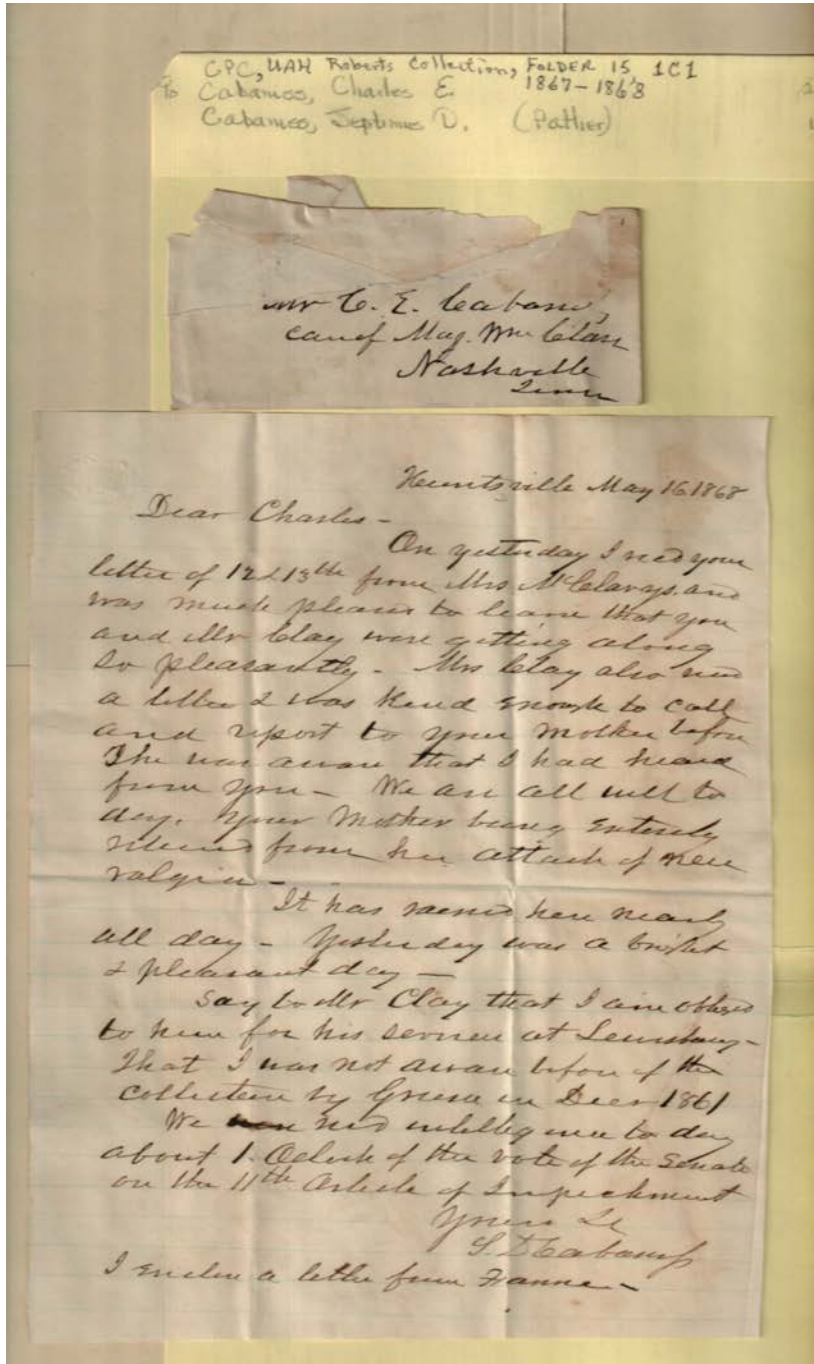 CPC, UAH Roberts Collection, FOLDER 15 1C1
To Cabaniss, Charles E. 1867-1868
Cabaniss, Septimus D. (Father)
Mr C. E. Cabaniss,
care of Maj. Wm Clay
Nashville
Tenn
Huntsville May 16 1868
Dear Charles -
On yesterday I recd your
letter of 12 & 13th from Mrs and
was much pleased to learn that you
and Mr Clay were getting along
so pleasantly - Mrs Clay also recd
a letter & was kind enough to call
and report to your Mother before
She was aware that I had heard
from you - We are all well to
day. Your Mother being entirely
relieved from her attack of neu
ralgia -
It has rained here nearly
all day - Yesterday was a bright
& pleasant day -
Say to Mr Clay that I am obliged
to him for his services at Lewisburg -
That I was not aware before of the
collection by Greene in Decr 1861
We recd intelligence to day
about 1. Oclock of the vote of the Senate
on the 11th Article of Impeachment
Yours &c
S. D. Cabaniss
I enclose a letter from Fannie -